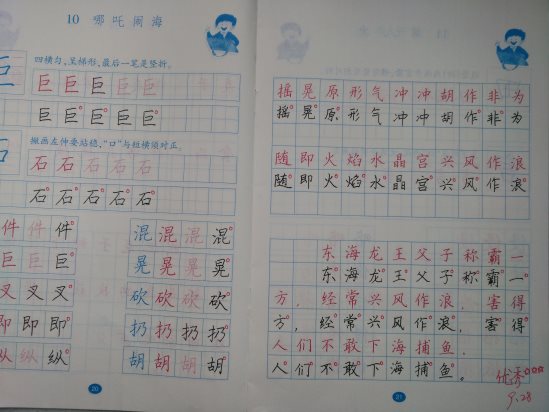 10 哪吒闹海
四横匀，呈梯形，最后一笔是竖折。
巨
巨 巨 巨 巨 巨
巨 巨 巨 巨 巨
撇画左伸要站稳，“口”与短横须对正。
石
石 石 石 石 石
石 石 石 石 石
件 件 件
巨 巨 巨
叉 叉 叉
即 即 即
纵 纵 纵
混 混 混 混
晃 晃 晃 晃
砍 砍 砍 砍
扔 扔 扔 扔
胡 胡 胡 胡
20
摇晃 原形 气冲冲 胡作非为
摇晃 原形 气冲冲 胡作非为
随即 火焰 水晶宫 兴风作浪
随即 火焰 水晶宫 兴风作浪
东海龙王父子称霸一
东海龙王父子称霸一
方，经常兴风作浪，害得
方，经常兴风作浪，害得
人们不敢下海捕鱼。
人们不敢下海捕鱼。
优秀
9.28
21